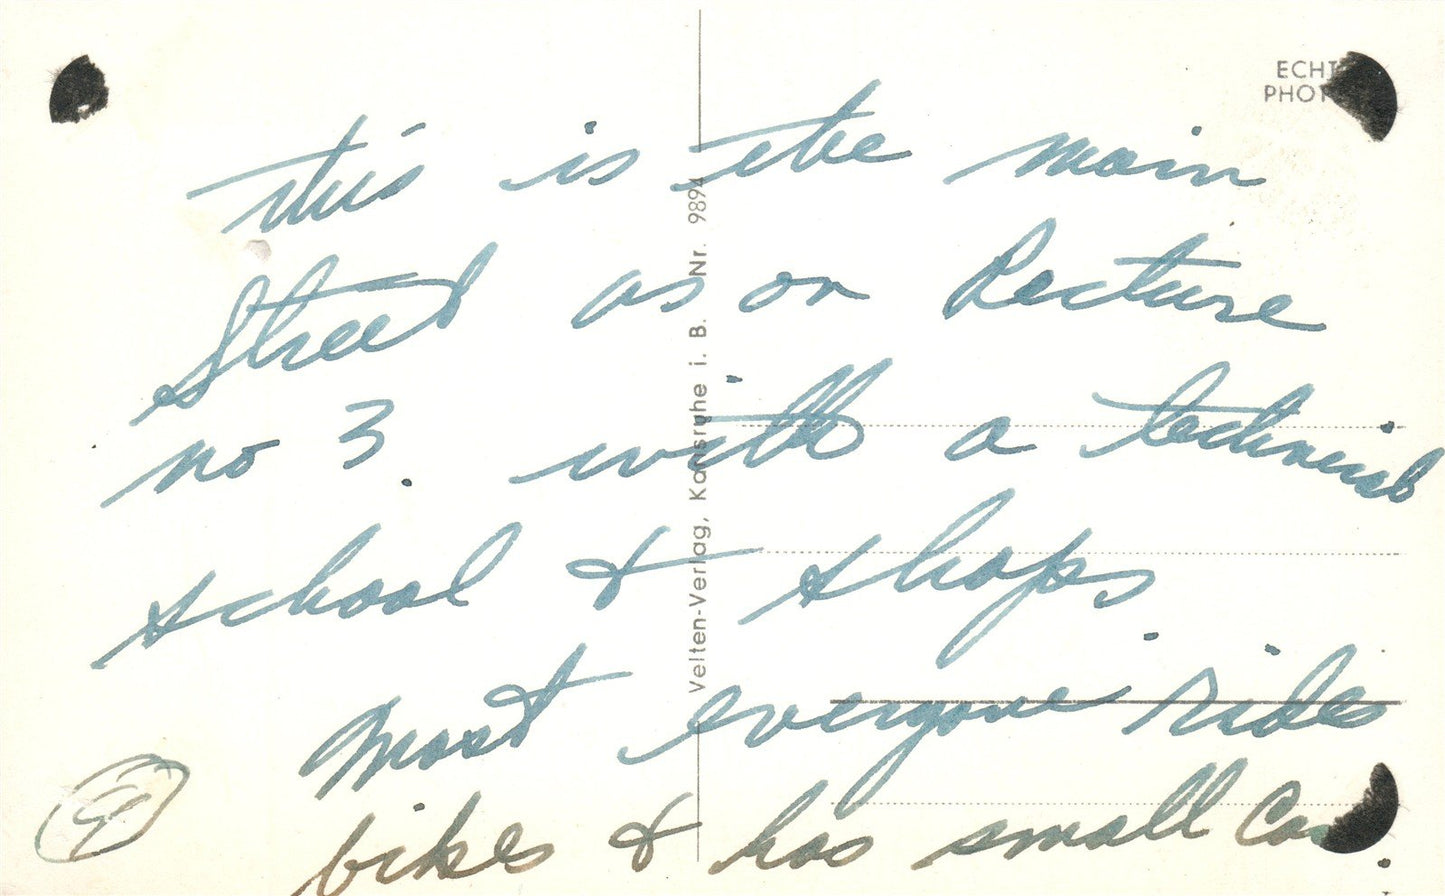 ECHT
PHOTO
this is the main
Street as on Lecture
no 3. with a technical
school & shops.
most everyone rides
bikes & has small Car.
9
Velten-Verlag, Karlsruhe i. B. Nr. 9894